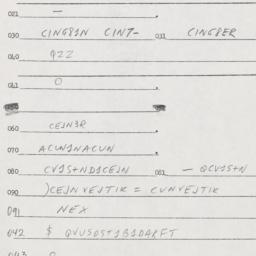 021 —
030 CING8IN CINT- 031 CING8ER
040 9ZZ
041 0
060 CEJN3R
070 ACUN1NACUN
080 CV1S+ND1CEJN 081 — QCV1S+N
090 )CEJNVEJTIK = CUNVEJTIK
091 NEX
042 $ QVUSOST1B1DARFT
043